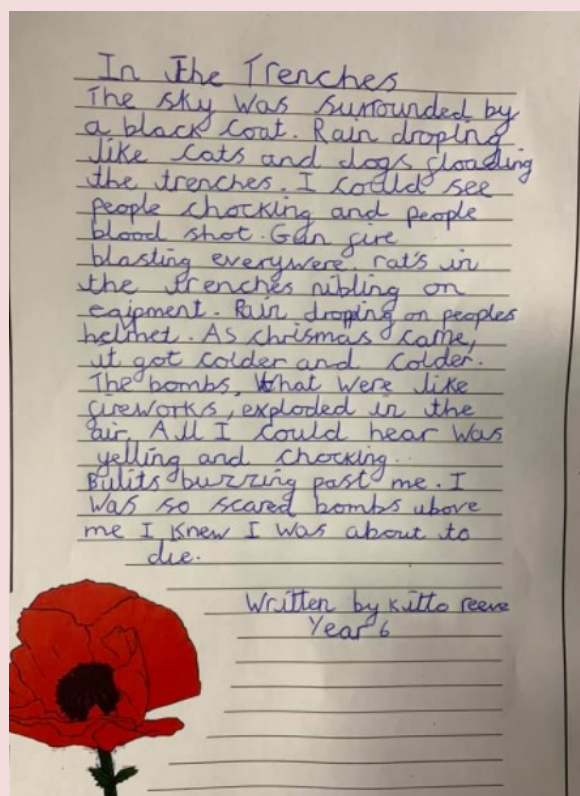 In The Trenches
The sky was surrounded by
a black coat. Rain droping
like cats and dogs floading
the trenches. I could see
people chocking and people
blood shot. Gun fire
blasting everywere. rat's in
the trenches nibling on
eqipment. Rain droping on peoples
helmet. As chrismas came,
it got colder and colder.
The bombs, What were like
fireworks, exploded in the
air. All I could hear was
yelling and chocking.
Bulits buzzing past me. I
was so scared bombs above
me I knew I was about to
die.
Written by Kitto reeve
Year 6